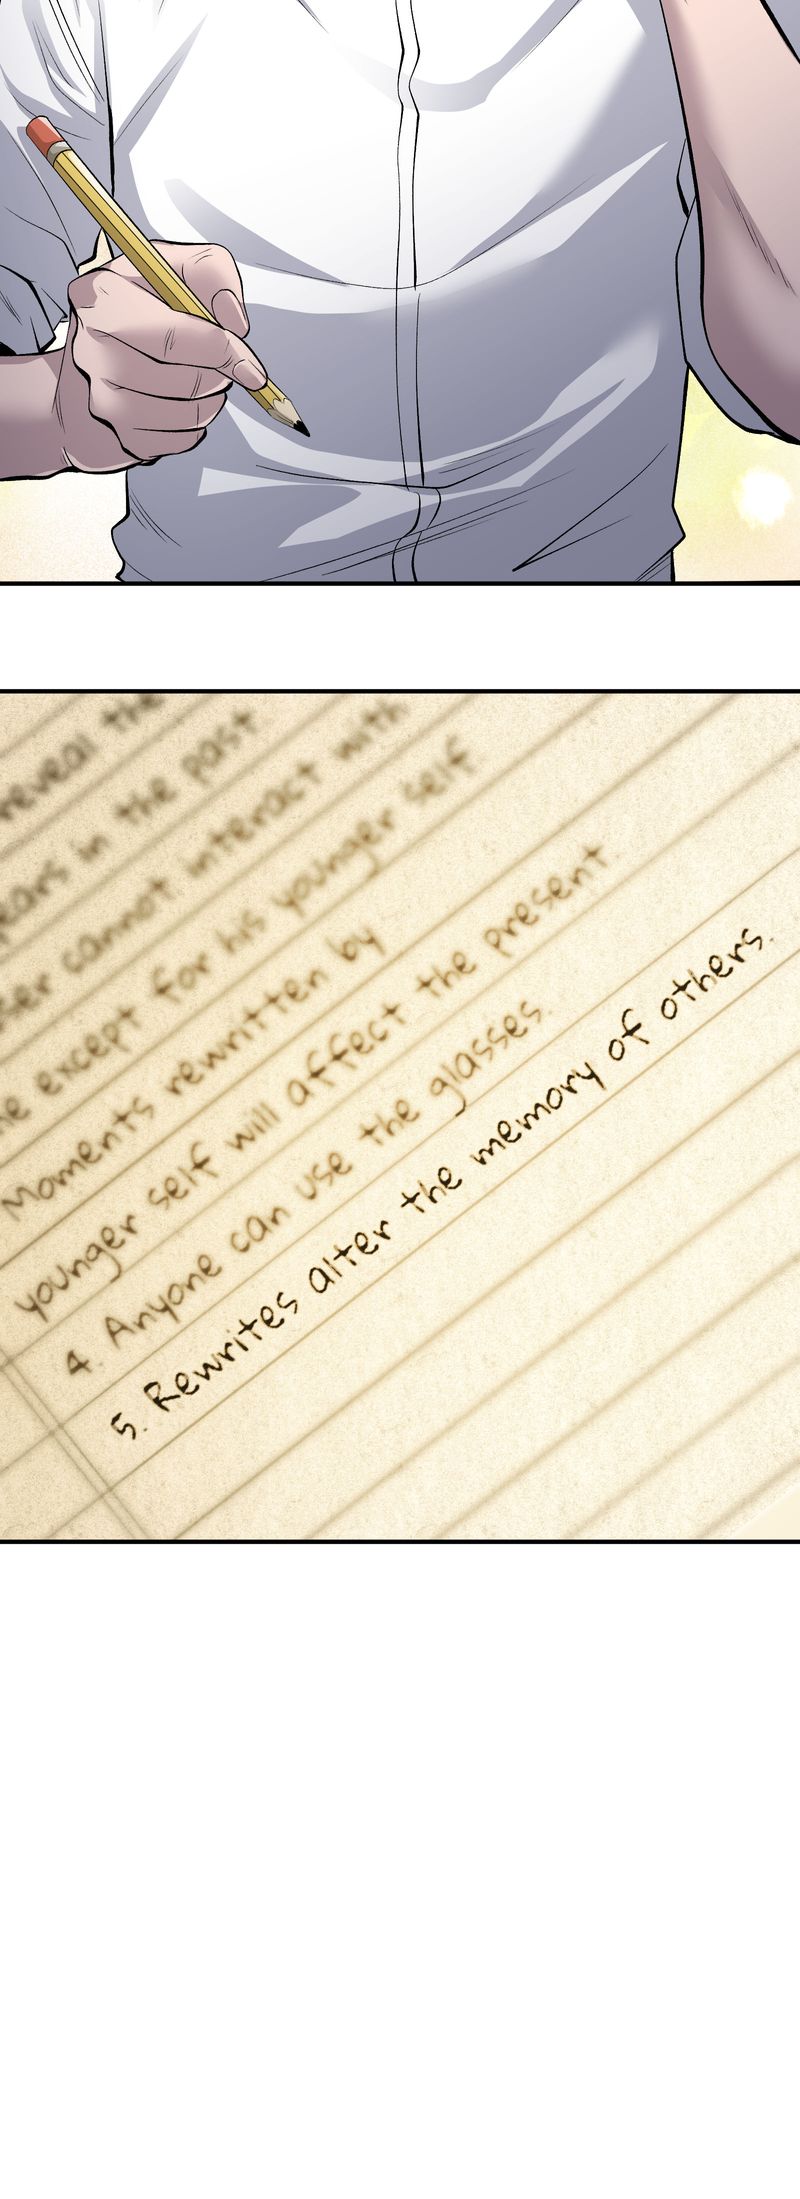 reveal the
years in the past
cannot interact with
except for his younger self
Moments rewritten by
younger self will affect the present.
4. Anyone can use the glasses.
5. Rewrites alter the memory of others.